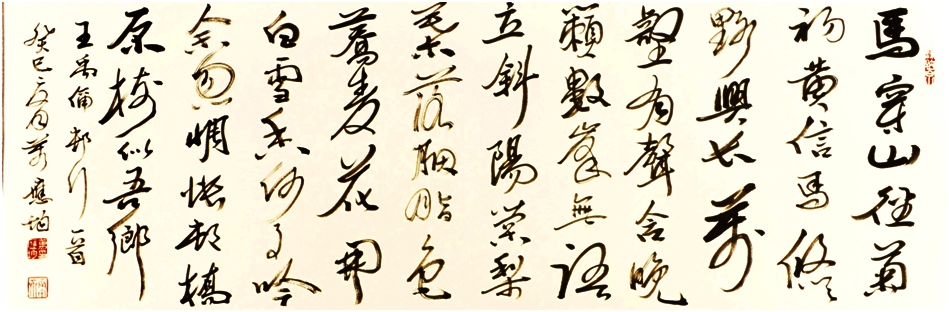 馬穿山徑菊
初黄信馬悠々
野興長萬
壑有聲含晚
籟數峯無語
立斜陽棠梨
葉落胭脂色
蕎麥花開
白雪香何事吟
余忽惆悵邨橋
原樹似吾鄉
王禹偁邨行一首
癸巳月應